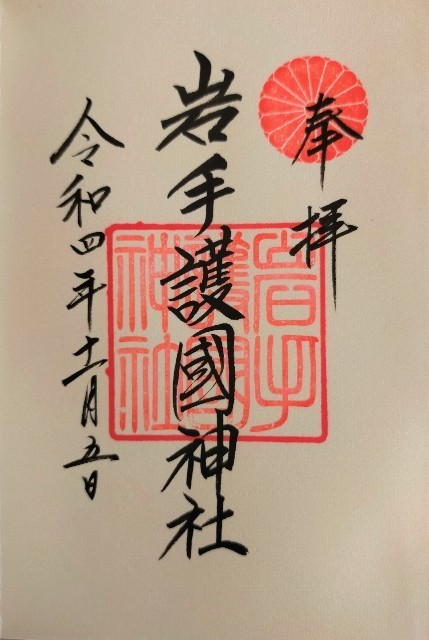 奉拝
岩手護國神社
岩手
護國
神社
令和四年十一月五日